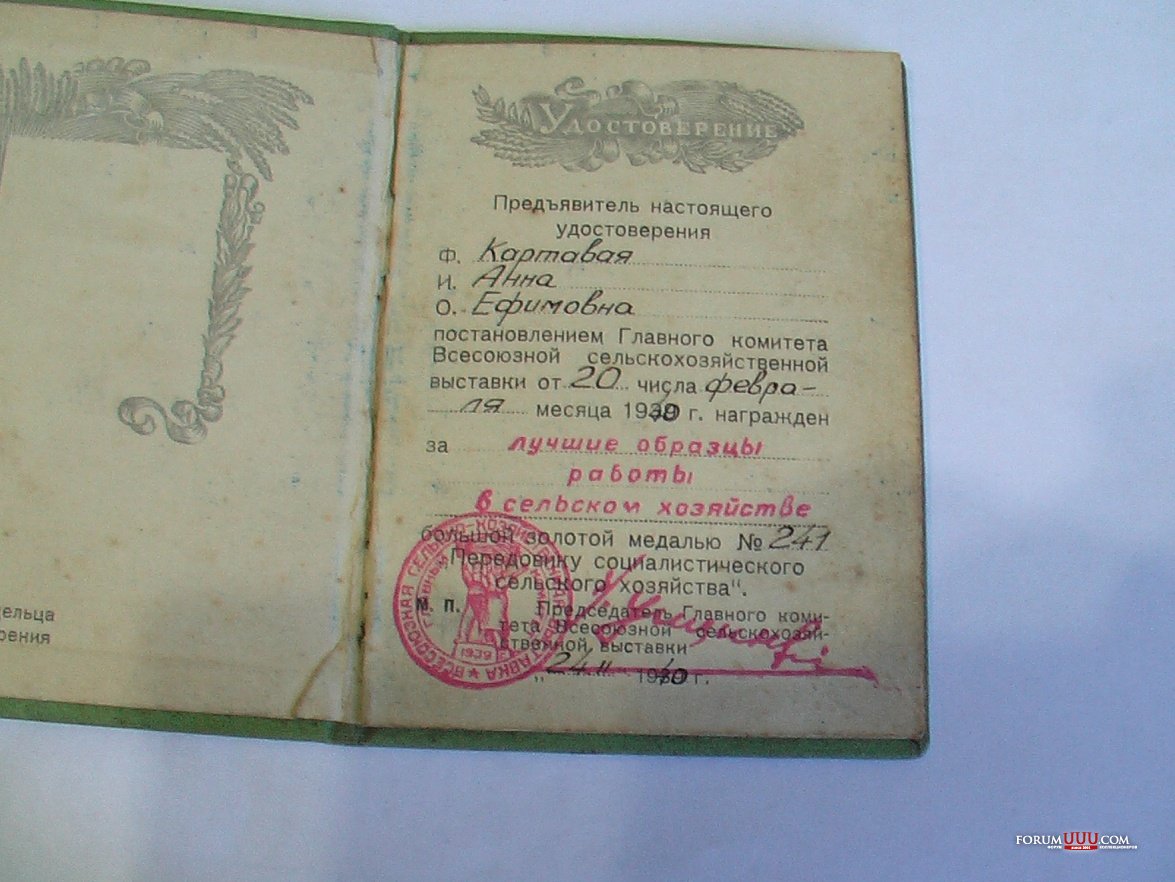 Удостоверение
Предъявитель настоящего
удостоверения
Ф. Картавая
И. Анна
О. Ефимовна
постановлением Главного комитета
Всесоюзной сельскохозяйственной
выставки от 20 числа февра-
ля месяца 1940 г. награжден
за лучшие образцы
работы
в сельском хозяйстве
большой золотой медалью № 241
„Передовику социалистического
сельского хозяйства“.
М. П. Председатель Главного коми-
тета Всесоюзной сельскохозяй-
ственной выставки
„24“ 1940 г.
ВСЕСОЮЗНАЯ СЕЛЬСКО-ХОЗЯЙСТВЕННАЯ ВЫСТАВКА
ГЛАВНЫЙ
1939
дельца
рения
FORUMUUU.COM